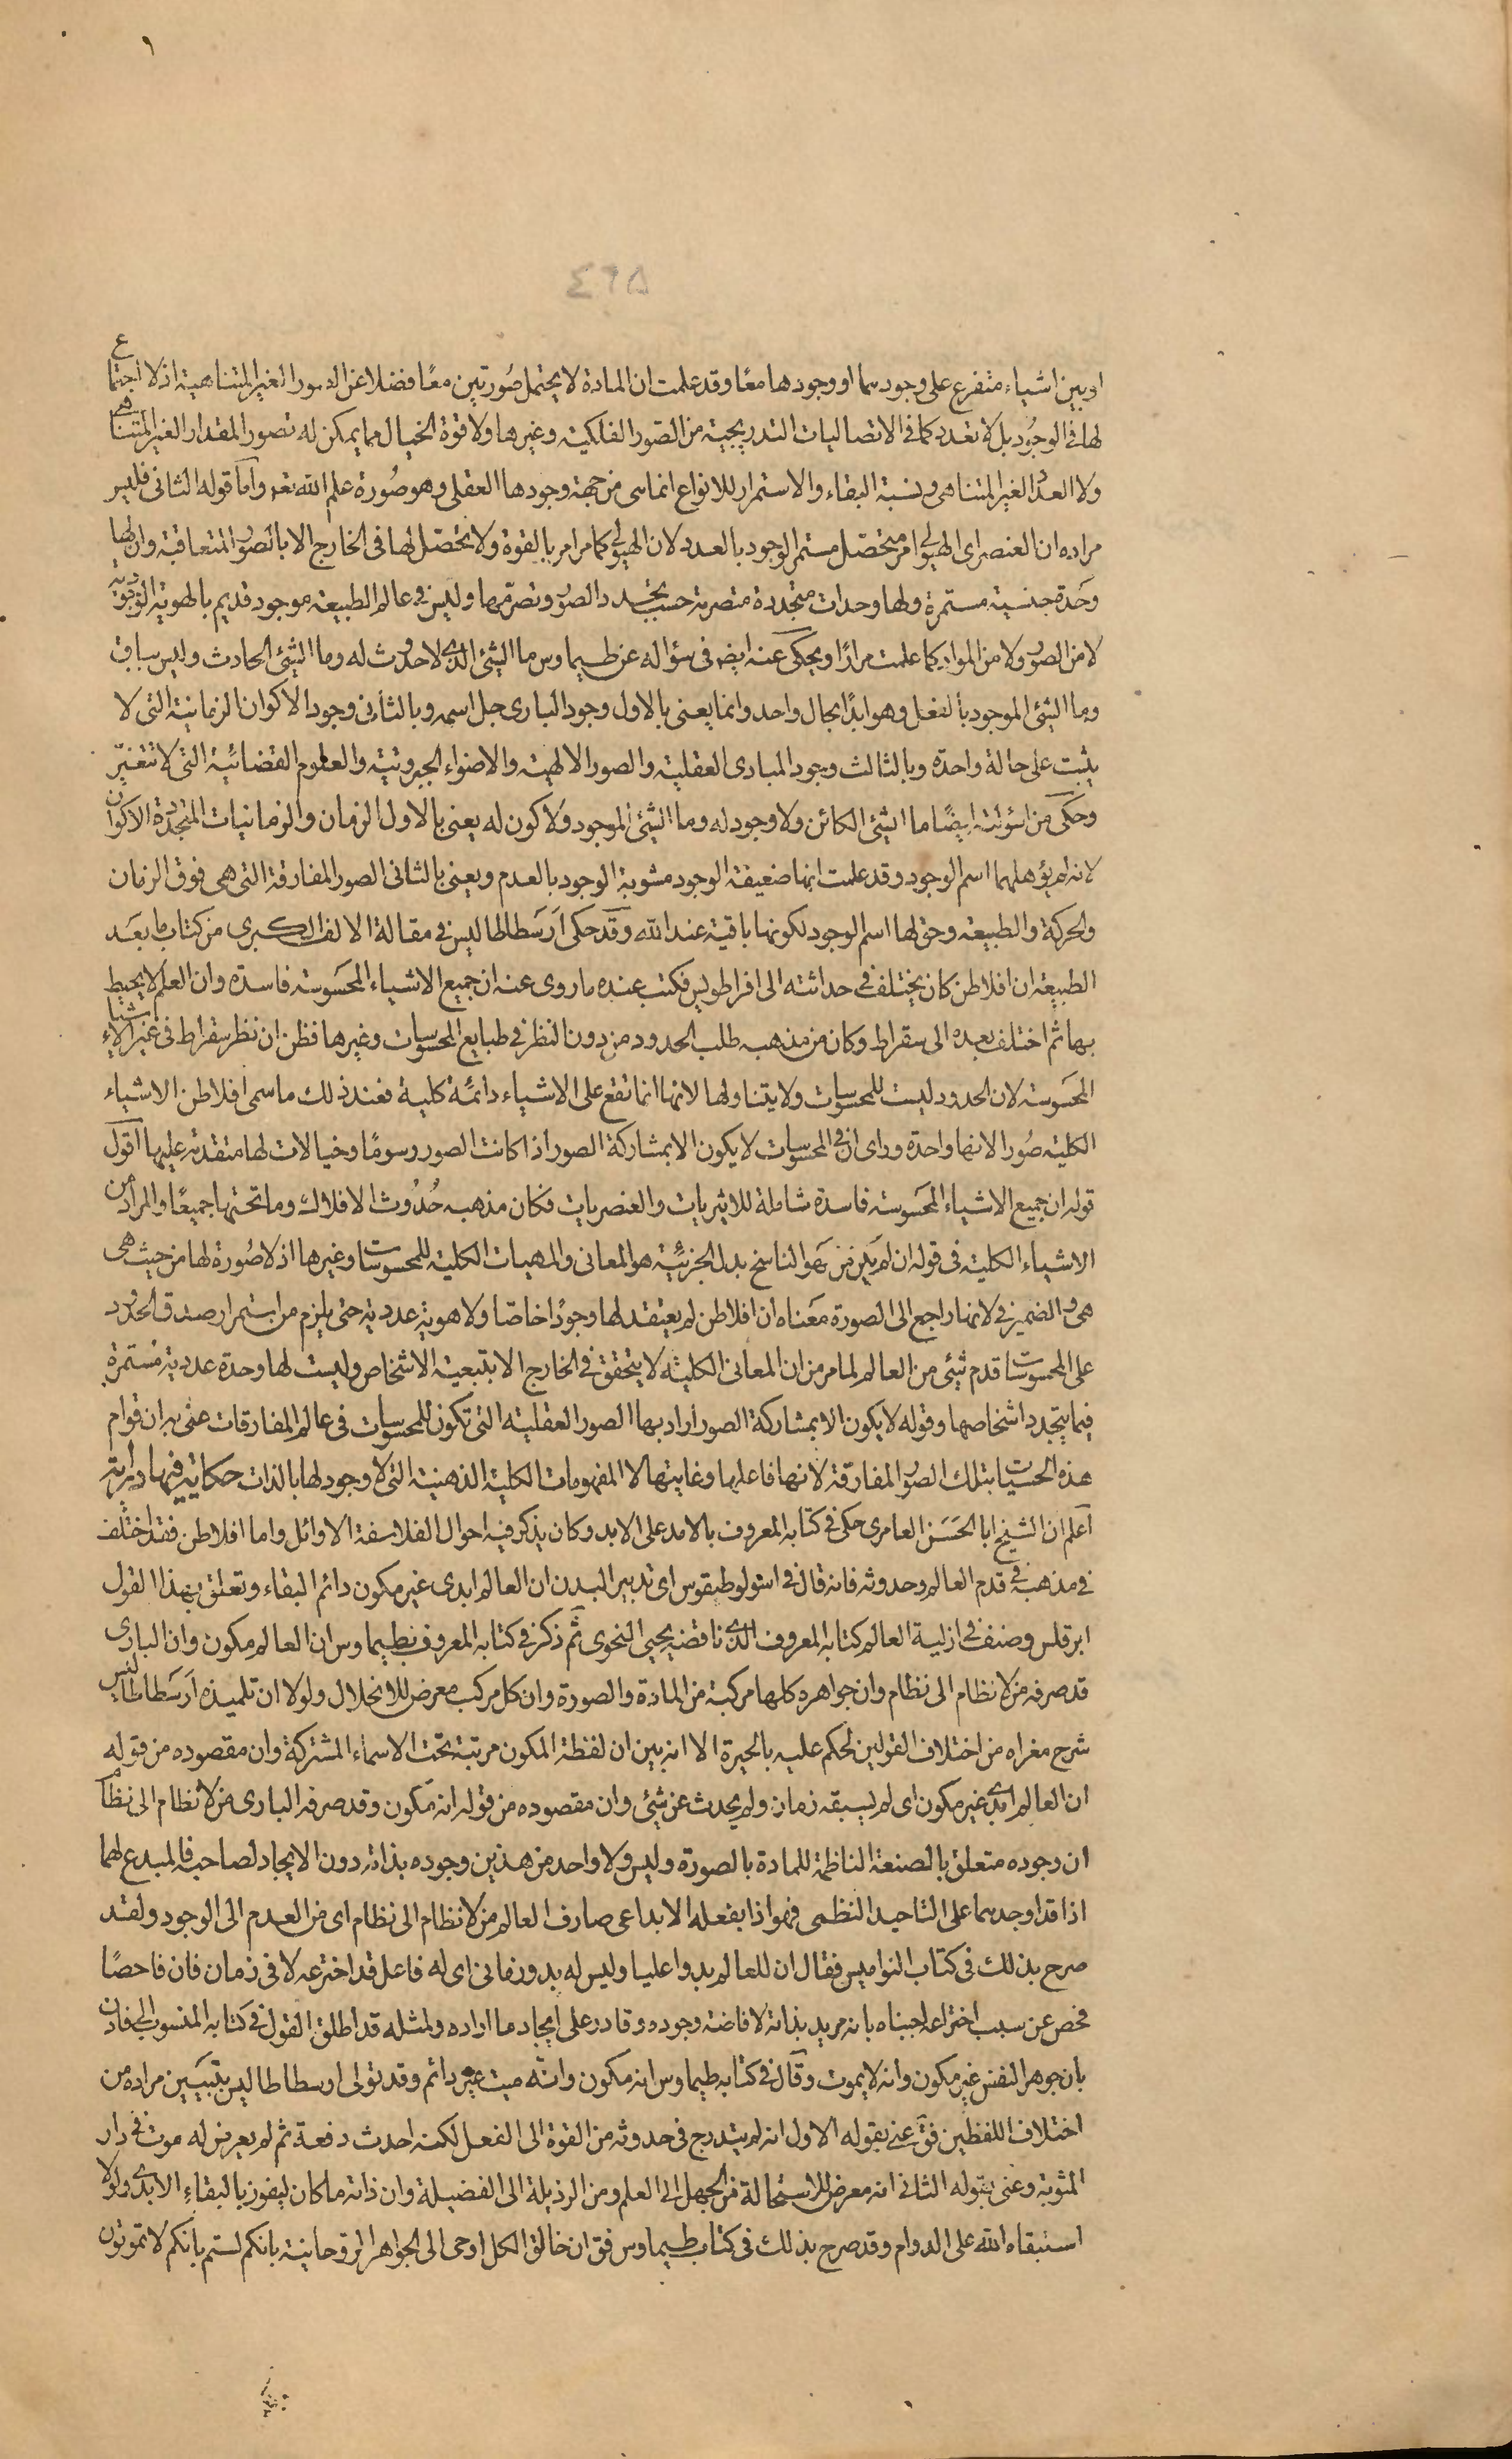 ١
٤٦٥
او بين اشياء متفرع على وجودهما او وجودها معًا وقد علمت ان المادة لا يحتمل صُورتين معًا فضلا عن الصور الغير المتناهية اذ لا اجتماع
لها فى الوجُود بل لا تعدد كما فى الاتصاليات التدريجية من الصّور الفلكيّة وغيرها ولا قوة الخيال مما يمكن له تصور المقدار الغير المتناهى
ولا العدد الغير المتناهى ونسبة البقاء والاستمرار للانواع انما هى من جهة وجودها العقلى وهو صُورة علم الله تعه واما قوله الثانى فليس
مراده ان العنصر اى الهيولى امر متحصّل مستمر الوجود بالعدد لان الهيولى كما مر امر بالقوة ولا تحصّل لها فى الخارج الا بالصّور المتعاقبة وان لها
وحَدة جنسية مستمرة ولها وحدات متجددة متصرمة حسب تجدد الصور وتصرمها وليس فى عالم الطبيعة موجود قديم بالهوية الوجودية
لا من الصور ولا من المواد كما علمت مرارًا ويحكى عنه ايضه فى سؤاله عن طيماوس ما الشئ الذى لا حدوث له وما الشئ الحادث وليس بباق
وما الشئ الموجود بالفعل وهو ابدًا بحال واحد وانما يعنى بالاول وجود البارى جل اسمه وبالثانى وجود الاكوان الزمانية التى لا
يثبت على حالة واحدة وبالثالث وجود المبادى العقلية والصور الالهية والاضواء الجبروتية والعلوم القضائية التى لا تتغيّر
وحكى من اسؤلته ايضًا ما الشئ الكائن ولا وجود له وما الشئ الموجود ولا كون له يعنى بالاول الزمان والزمانيات المتجددة الاكوان
لانه لم يؤهلهما اسم الوجود وقد علمت انها ضعيفة الوجود مشوبة الوجود بالعدم ويعنى بالثانى الصور المفارقة التى هى فوق الزمان
والحركة والطبيعة وحق لها اسم الوجود لكونها باقية عند الله وقد حكى ارسَطاطاليس فى مقالة الالف الكبرى من كتاب ما بعَد
الطبيعة ان افلاطن كان يختلف فى حداثته الى اقراطولس فكتب عنه ما روى عنه ان جميع الاشياء المحَسوسة فاسدة وان العلم لا يحيط
بها ثم اختلف بعده الى سقراط وكان من مذهبه طلب الحدود من دون النظر فى طبايع المحسوسات وغيرها فظن ان نظر سقراط فى غير الاشياء
المحَسوسة لان الحدود ليست للمحسوسات ولا يتناولها لانها انما تقع على الاشياء دائمة كلية فعند ذلك ما سمى افلاطن الاشياء
الكلية صُورا لانها واحدة وراى ان فى المحسوسات لا يكون الا بمشاركة الصور اذا كانت الصور رسومًا وخيالات لها متقدمة عليها اقول
قوله ان جميع الاشياء المحَسوسة فاسدة شاملة للاثيريات والعنصريات فكان مذهبه حُدُوث الافلاك وما تحتها جميعًا والمراد من
الاشياء الكلية فى قوله ان لم يكن من سَهو الناسخ بدل الجزئية هو المعانى والمهيات الكلية للمحسوسات وغيرها اذ لا صُورة لها من حيث هى
هى والضمير فى لانها راجع الى الصورة معَناه ان افلاطن لم يعتقد لها وجودًا خاصّا ولا هوية عددية حتى يلزم من استمرار صدق الحدود
على المحسوسات قدم شئ من العالم لما مر من ان المعانى الكلية لا يتحقق فى الخارج الا بتبعية الاشخاص وليست لها وحدة عددية مستمرة
فيما يتجدد اشخاصها وقوله لا يكون الا بمشاركة الصور اراد بها الصور العقلية التى تكون للمحسوسات فى عالم المفارقات عنى به ان قوام
هذه الحسيات بتلك الصور المفارقة لانها فاعلها وغايتها لا المفهومات الكلية الذهنية التى لا وجود لها بالذات حكاية فيها دراية
اعلم ان الشيخ ابا الحَسَن العامرى حكى فى كتابه المعروف بالامد على الابد وكان يذكر فيه احوال الفلاسفة الاوائل واما افلاطن فقد اختلف
فى مذهبه فى قدم العالم وحدوثه فانه قال فى اسولوطيقوس اى تدبير البدن ان العالم ابدى غير مكون دائم البقاء وتعلق بهذا القول
ابرقلس وصنف فى ازلية العالم كتابه المعروف الذى ناقضه يحيى النحوى ثم ذكر فى كتابه المعروف بطيماوس ان العالم مكون وان البارى
قد صرفه من لا نظام الى نظام وان جواهره كلها مركبة من المادة والصورة وان كل مركب معرض للانحلال ولولا ان تلميذه ارسَطاطاليس
شرح مغزاه من اختلاف القولين لحكم عليه بالحيرة الا انه بين ان لفظة المكون مرتبة تحت الاسماء المشتركة وان مقصوده من قوله
ان العالم ابدى غير مكون اى لم يسبقه زمان ولم يحدث عن شئ وان مقصوده من قوله انه مكون وقد صرفه البارى من لا نظام الى نظام
ان وجوده متعلق بالصنعة الناظمة للمادة بالصورة وليس ولا واحد من هذين وجوده بذاته دون الايجاد لصاحبه فالمبدع لهما
اذا قد اوجدهما على التاحيد النظمى فهو اذا بفعله الابداعى صارف العالم من لا نظام الى نظام اى من العدم الى الوجود ولقد
صرح بذلك فى كتاب النواميس فقال ان للعالم بدوا عليا وليس له بدو زمانى اى له فاعل قد اخترعه لا فى زمان فان فاحصًا
فحص عن سبب اختراعه اجبناه بانه مريد بذاته لافاضة وجوده وقادر على ايجاد ما اراده ولمثله قد اطلق القول فى كتابه المنسوب الى فاذن
بان جوهر النفس غير مكون وانه لا يموت وقال فى كتابه طيماوس انه مكون وانّه ميت غير دائم وقد تولى ارسطاطاليس بتبيين مراده من
اختلاف اللفظين فق عنى بقوله الاول انه لم يتدرج فى حدوثه من القوة الى الفعل لكنه احدث دفعة ثم لم يعرض له موت فى دار
المثوبة وعنى بقوله الثانى انه معرض للاستحالة من الجهل الى العلم ومن الرذيلة الى الفضيلة وان ذاته ما كان ليفوز بالبقاء الابدى ولولا
استبقاه الله على الدوام وقد صرح بذلك فى كتاب طيماوس فق ان خالق الكل اوحى الى الجواهر الروحانية بانكم لستم بانكم لا تموتون